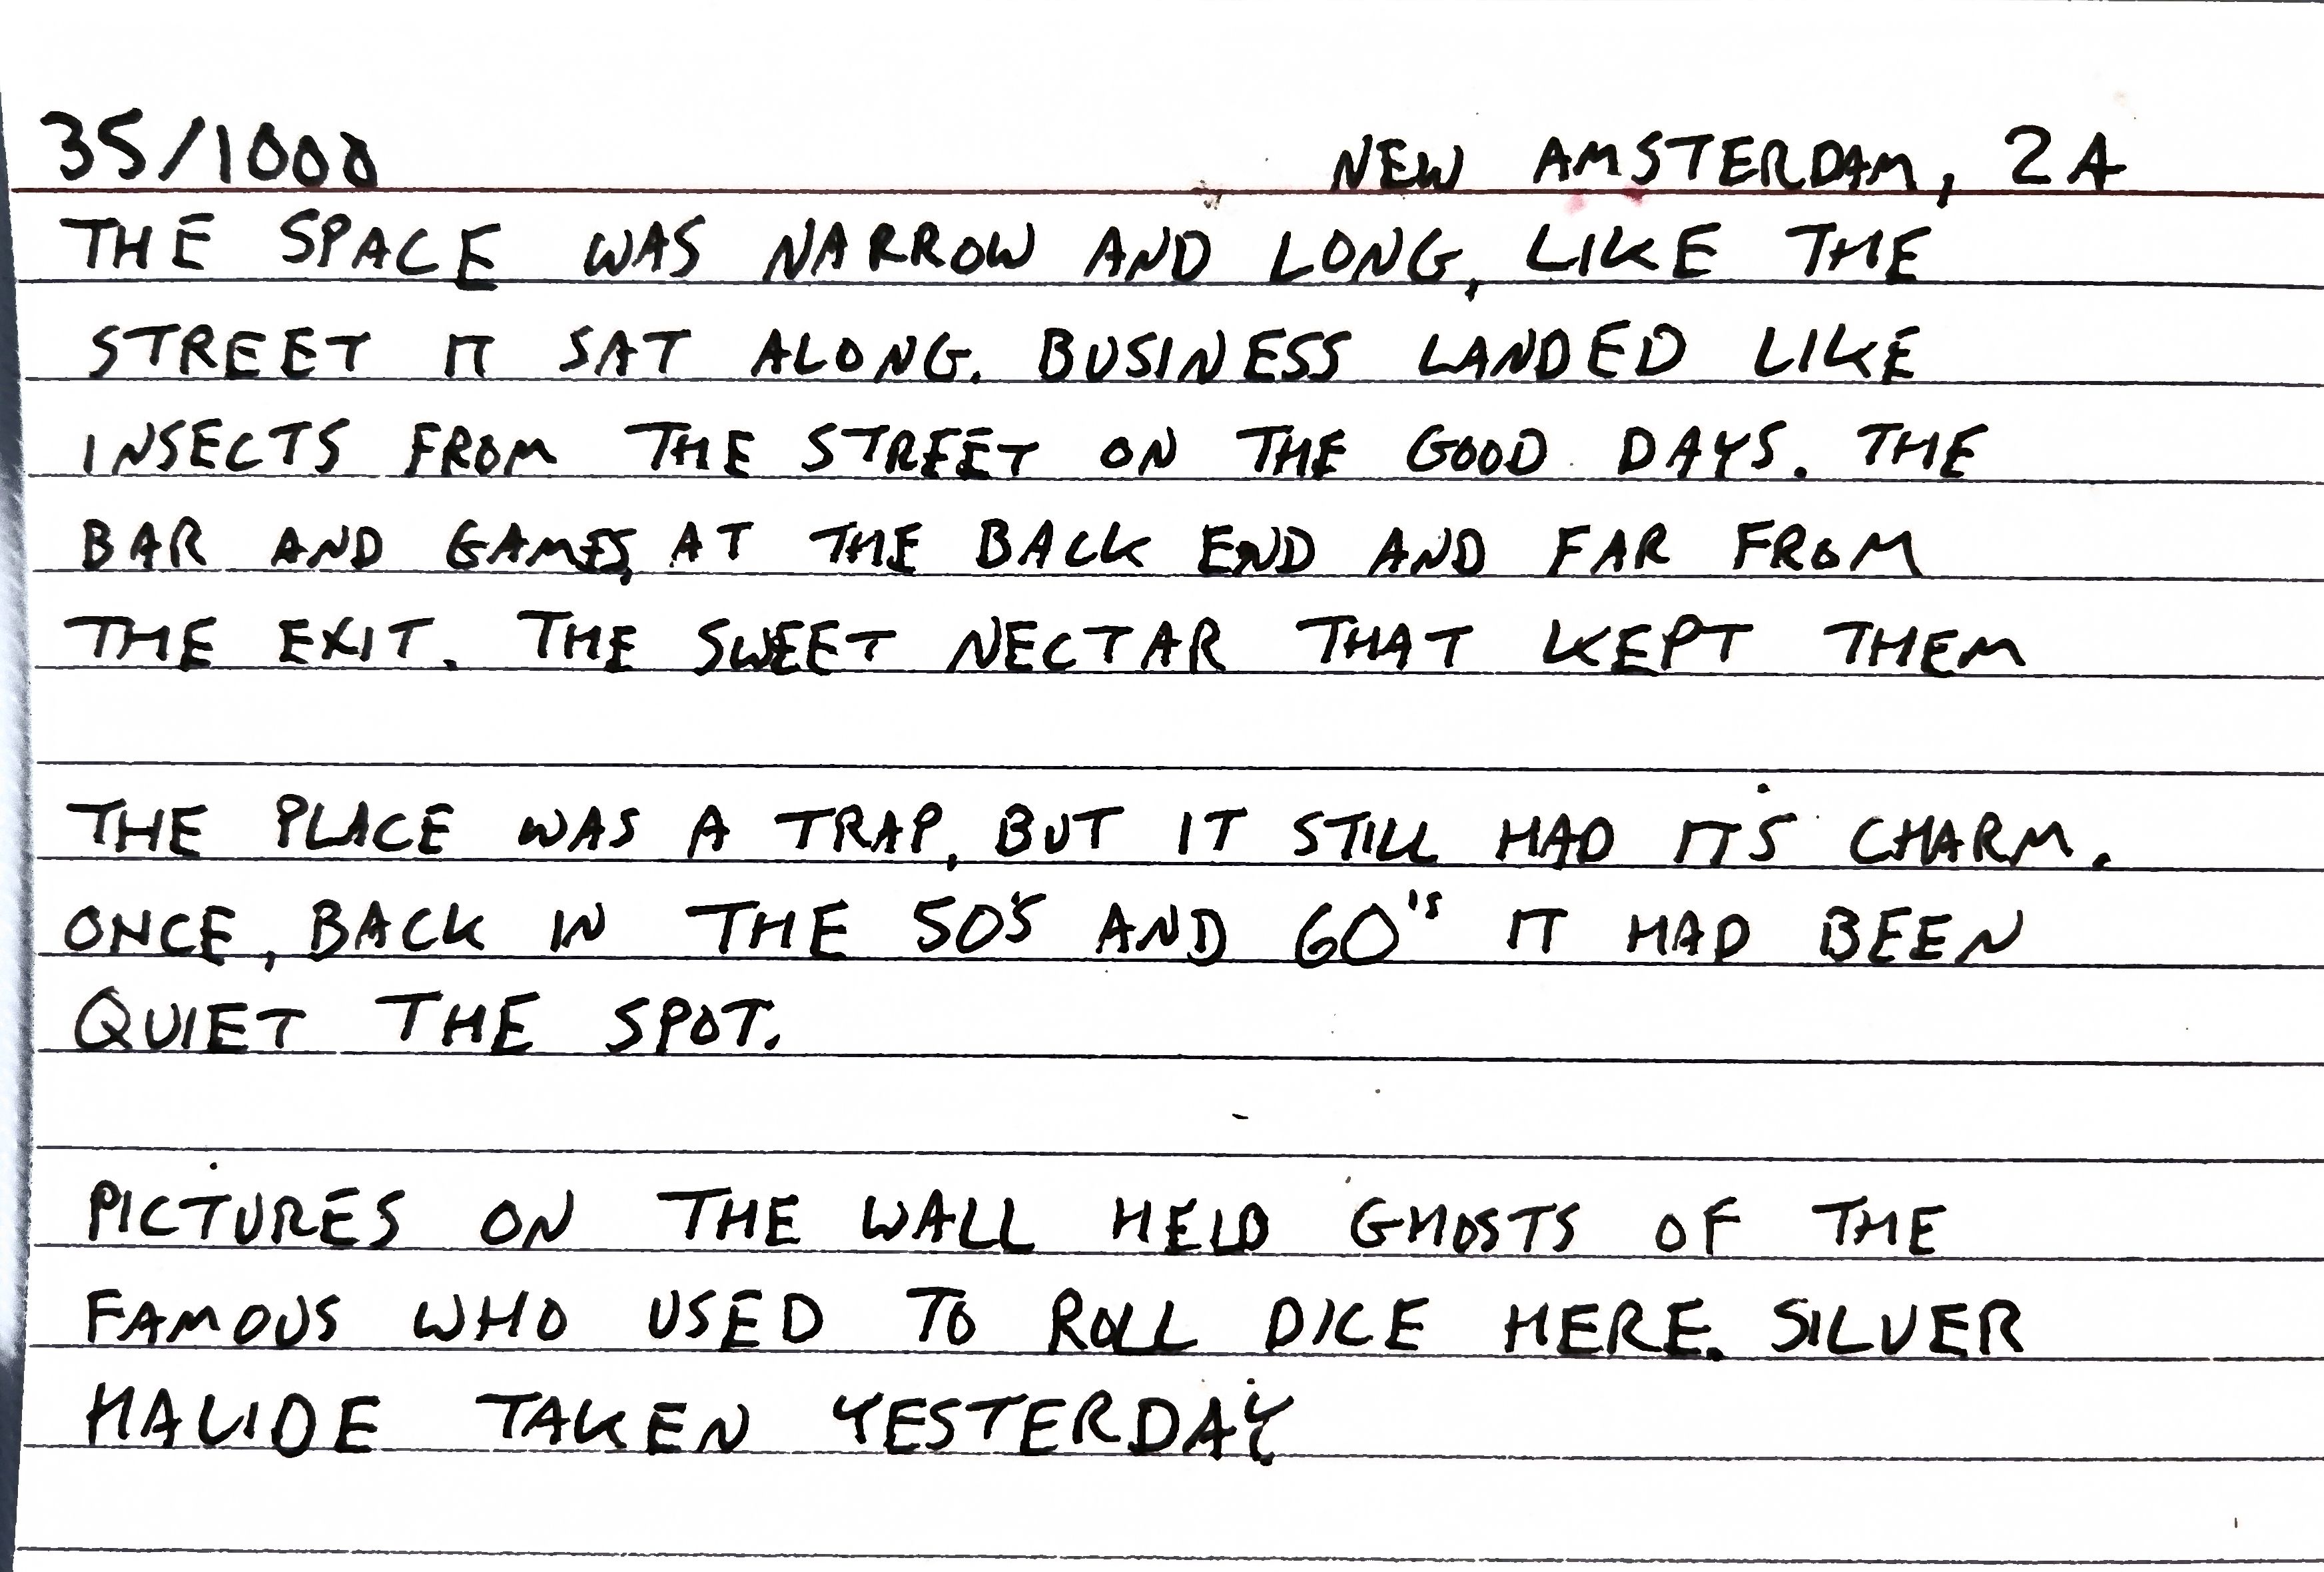 35/1000 NEW AMSTERDAM, 2A
THE SPACE WAS NARROW AND LONG, LIKE THE
STREET IT SAT ALONG. BUSINESS LANDED LIKE
INSECTS FROM THE STREET ON THE GOOD DAYS. THE
BAR AND GAMES, AT THE BACK END AND FAR FROM
THE EXIT. THE SWEET NECTAR THAT KEPT THEM
THE PLACE WAS A TRAP, BUT IT STILL HAD ITS CHARM.
ONCE, BACK IN THE 50'S AND 60'S IT HAD BEEN
QUIET THE SPOT.
PICTURES ON THE WALL HELD GHOSTS OF THE
FAMOUS WHO USED TO ROLL DICE HERE. SILVER
HALIDE TAKEN YESTERDAY